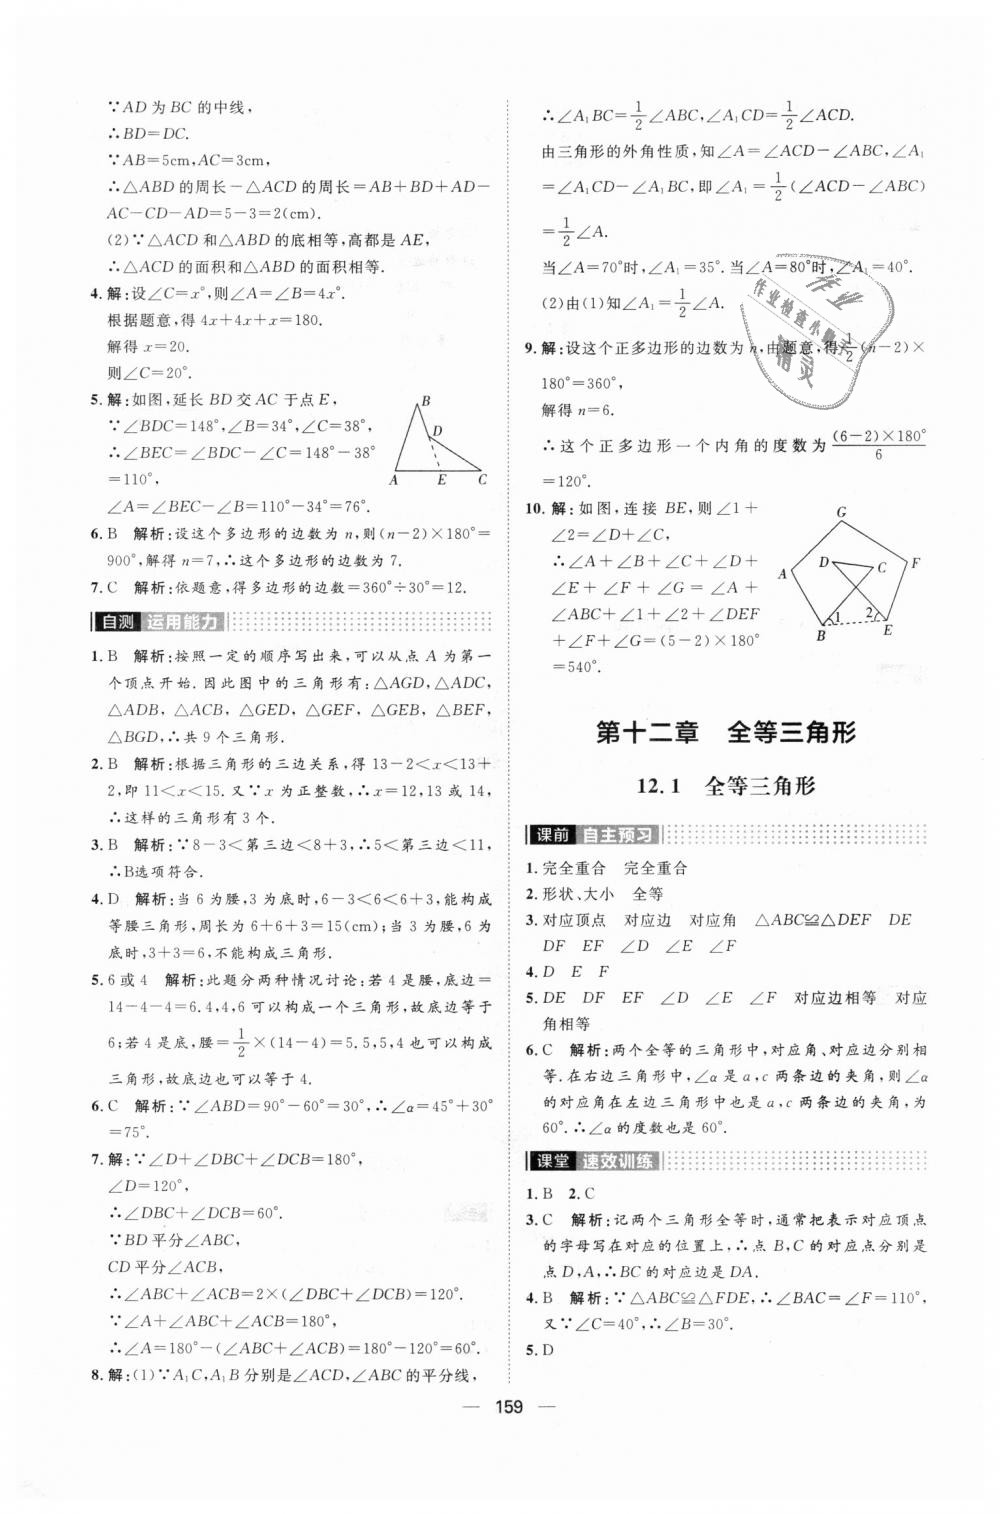 ∵AD为BC的中线,
∴BD=DC.
∵AB=5cm,AC=3cm,
∴△ABD的周长-△ACD的周长=AB+BD+AD-
AC-CD-AD=5-3=2(cm).
(2)∵△ACD和△ABD的底相等,高都是AE,
∴△ACD的面积和△ABD的面积相等.
4.解:设∠C=x°,则∠A=∠B=4x°.
根据题意,得4x+4x+x=180.
解得x=20.
则∠C=20°.
5.解:如图,延长BD交AC于点E,
∵∠BDC=148°,∠B=34°,∠C=38°,
∴∠BEC=∠BDC-∠C=148°-38°
=110°,
∠A=∠BEC-∠B=110°-34°=76°.
B
D
A E C
6.B 解析:设这个多边形的边数为n,则(n-2)×180°=
900°,解得n=7,∴这个多边形的边数为7.
7.C 解析:依题意,得多边形的边数=360°÷30°=12.
自测 运用能力
1.B 解析:按照一定的顺序写出来,可以从点A为第一
个顶点开始.因此图中的三角形有:△AGD,△ADC,
△ADB,△ACB,△GED,△GEF,△GEB,△BEF,
△BGD,∴共9个三角形.
2.B 解析:根据三角形的三边关系,得13-2<x<13+
2,即11<x<15.又∵x为正整数,∴x=12,13或14,
∴这样的三角形有3个.
3.B 解析:∵8-3<第三边<8+3,∴5<第三边<11,
∴B选项符合.
4.D 解析:当6为腰,3为底时,6-3<6<6+3,能构成
等腰三角形,周长为6+6+3=15(cm);当3为腰,6为
底时,3+3=6,不能构成三角形.
5.6或4 解析:此题分两种情况讨论:若4是腰,底边=
14-4-4=6.4,4,6可以构成一个三角形,故底边等于
6;若4是底,腰=1/2×(14-4)=5.5,5,4也可以构成
三角形,故底边也可以等于4.
6.C 解析:∵∠ABD=90°-60°=30°,∴∠α=45°+30°
=75°.
7.解:∵∠D+∠DBC+∠DCB=180°,
∠D=120°,
∴∠DBC+∠DCB=60°.
∵BD平分∠ABC,
CD平分∠ACB,
∴∠ABC+∠ACB=2×(∠DBC+∠DCB)=120°.
∵∠A+∠ABC+∠ACB=180°,
∴∠A=180°-(∠ABC+∠ACB)=180°-120°=60°.
8.解:(1)∵A₁C,A₁B分别是∠ACD,∠ABC的平分线,
∴∠A₁BC=1/2∠ABC,∠A₁CD=1/2∠ACD.
由三角形的外角性质,知∠A=∠ACD-∠ABC,∠A₁
=∠A₁CD-∠A₁BC,即∠A₁=1/2(∠ACD-∠ABC)
=1/2∠A.
当∠A=70°时,∠A₁=35°.当∠A=80°时,∠A₁=40°.
(2)由(1)知∠A₁=1/2∠A.
9.解:设这个正多边形的边数为n,由题意,得1/2(n-2)×
180°=360°,
解得n=6.
∴这个正多边形一个内角的度数为(6-2)×180°/6
=120°.
10.解:如图,连接BE,则∠1+
∠2=∠D+∠C,
∴∠A+∠B+∠C+∠D+
∠E+∠F+∠G=∠A+
∠ABC+∠1+∠2+∠DEF
+∠F+∠G=(5-2)×180°
=540°.
G
A D C F
1 2
B E
第十二章 全等三角形
12.1 全等三角形
课前 自主预习
1.完全重合 完全重合
2.形状、大小 全等
3.对应顶点 对应边 对应角 △ABC≌△DEF DE
DF EF ∠D ∠E ∠F
4.D E F
5.DE DF EF ∠D ∠E ∠F 对应边相等 对应
角相等
6.C 解析:两个全等的三角形中,对应角、对应边分别相
等.在右边三角形中,∠α是a,c两条边的夹角,则∠α
的对应角在左边三角形中也是a,c两条边的夹角,为
60°.∴∠α的度数也是60°.
课堂 速效训练
1.B 2.C
3.C 解析:记两个三角形全等时,通常把表示对应顶点
的字母写在对应的位置上,∴点B,C的对应点分别是
点D,A,∴BC的对应边是DA.
4.B 解析:∵△ABC≌△FDE,∴∠BAC=∠F=110°,
又∵∠C=40°,∴∠B=30°.
5.D
— 159 —
作业
作业检查小助手
精灵